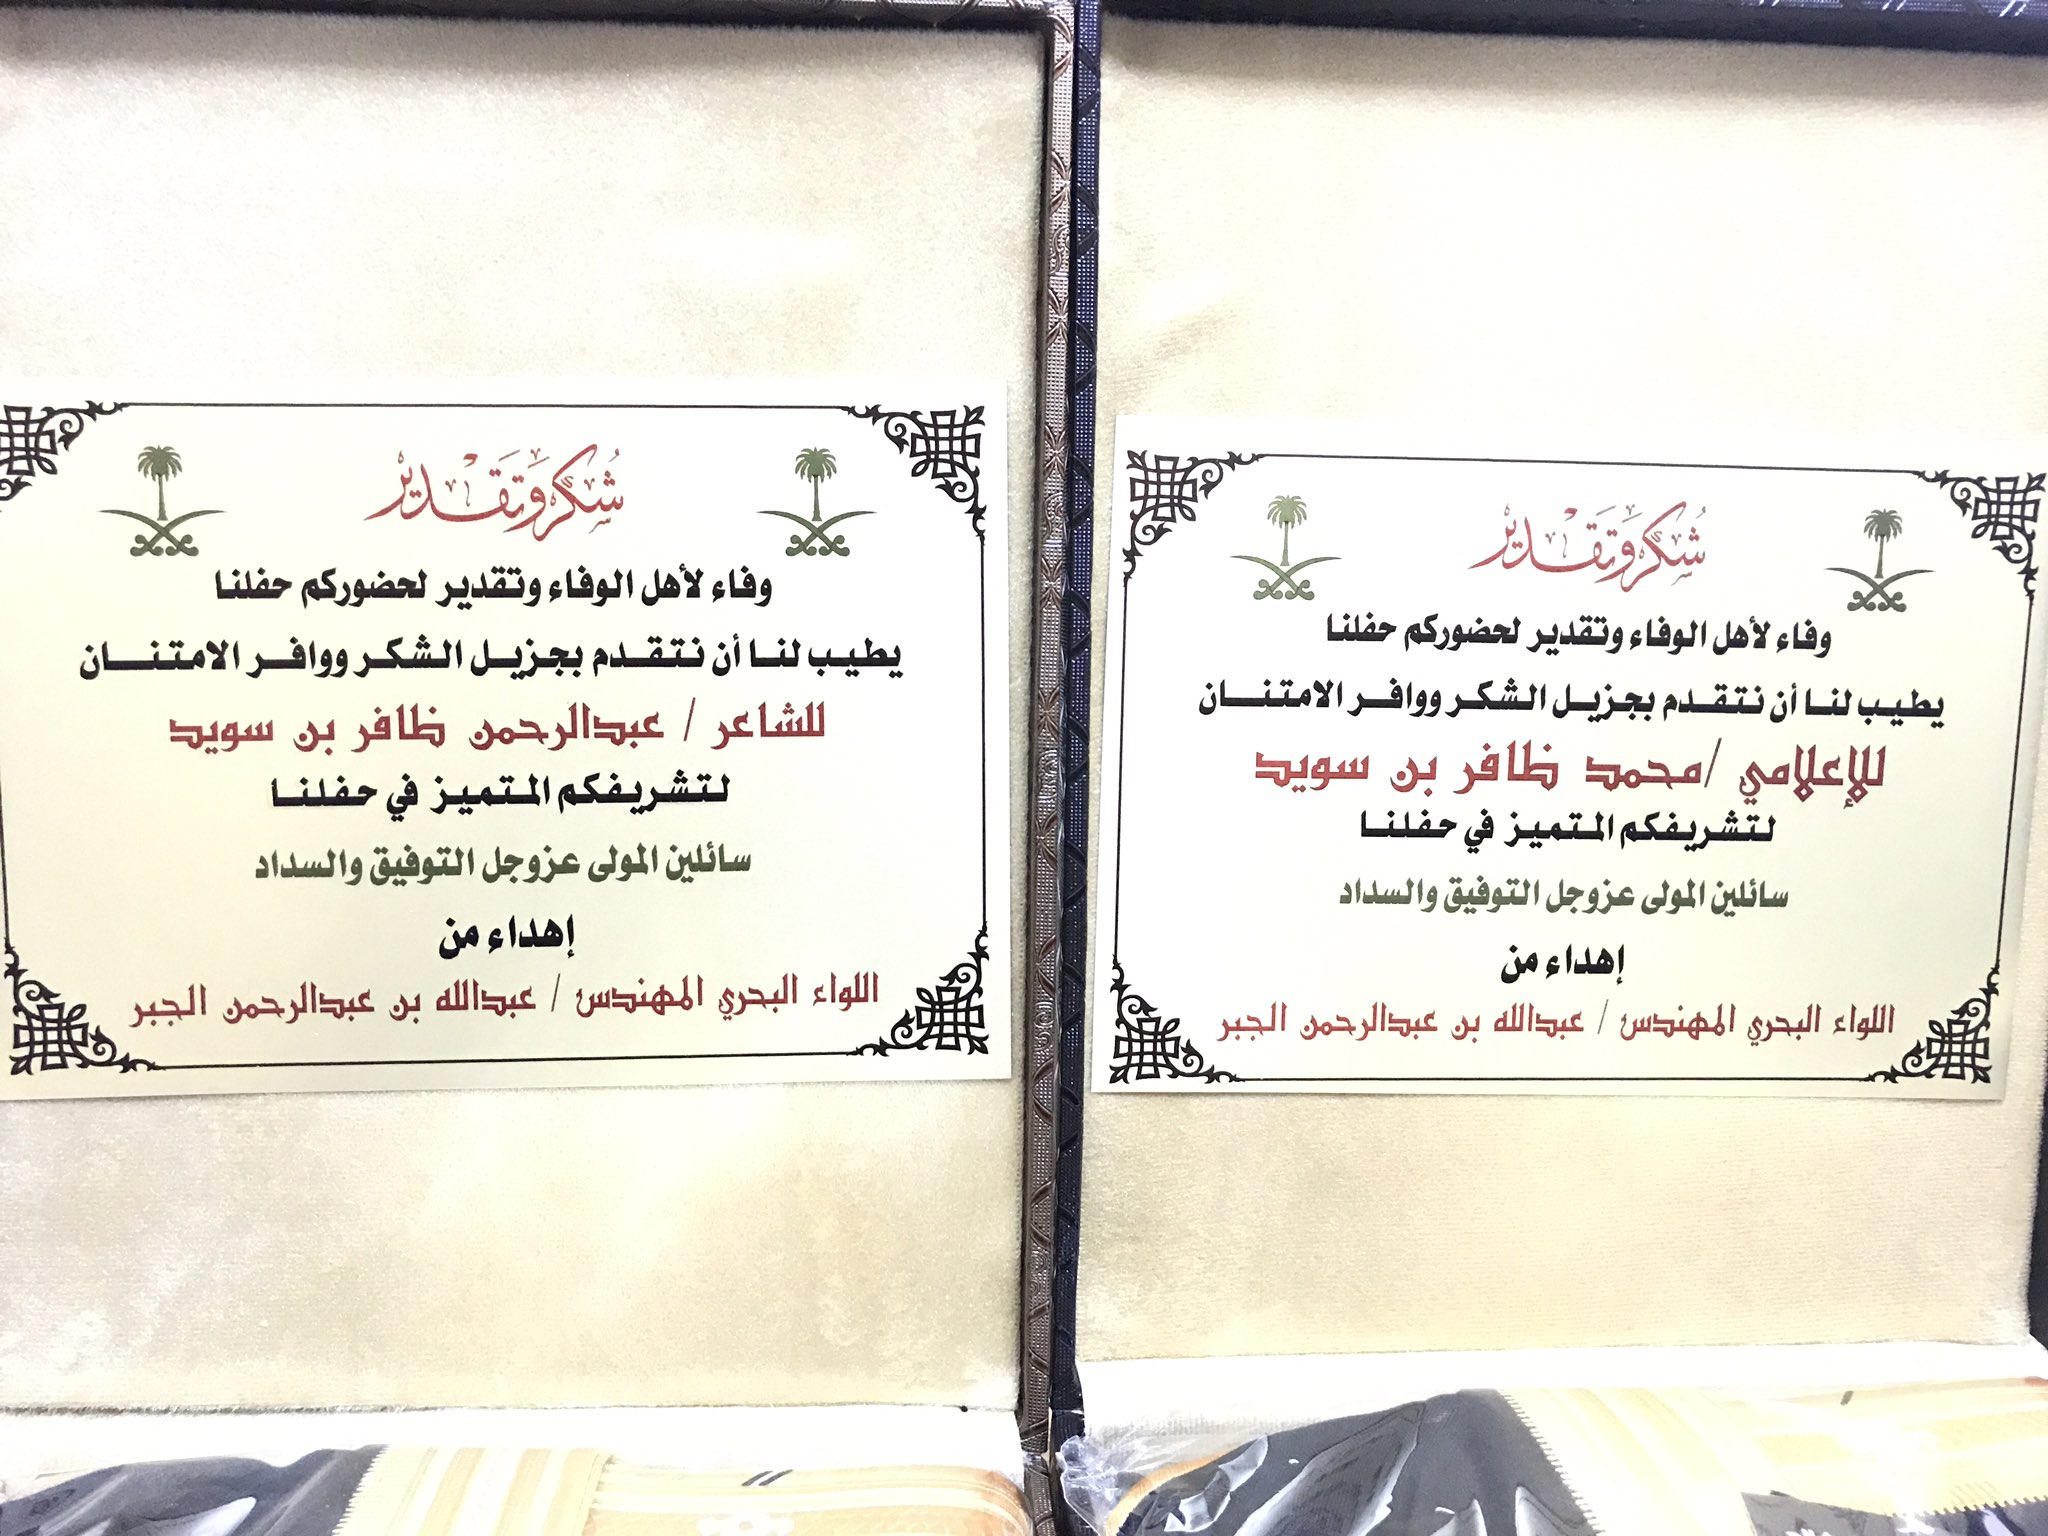 شكر وتقدير
وفاء لأهل الوفاء وتقدير لحضوركم حفلنا
يطيب لنا أن نتقدم بجزيل الشكر ووافر الامتنان
للشاعر / عبدالرحمن ظافر بن سويد
لتشريفكم المتميز في حفلنا
سائلين المولى عزوجل التوفيق والسداد
إهداء من
اللواء البحري المهندس / عبدالله بن عبدالرحمن الجبر
شكر وتقدير
وفاء لأهل الوفاء وتقدير لحضوركم حفلنا
يطيب لنا أن نتقدم بجزيل الشكر ووافر الامتنان
للإعلامي /محمد ظافر بن سويد
لتشريفكم المتميز في حفلنا
سائلين المولى عزوجل التوفيق والسداد
إهداء من
اللواء البحري المهندس / عبدالله بن عبدالرحمن الجبر